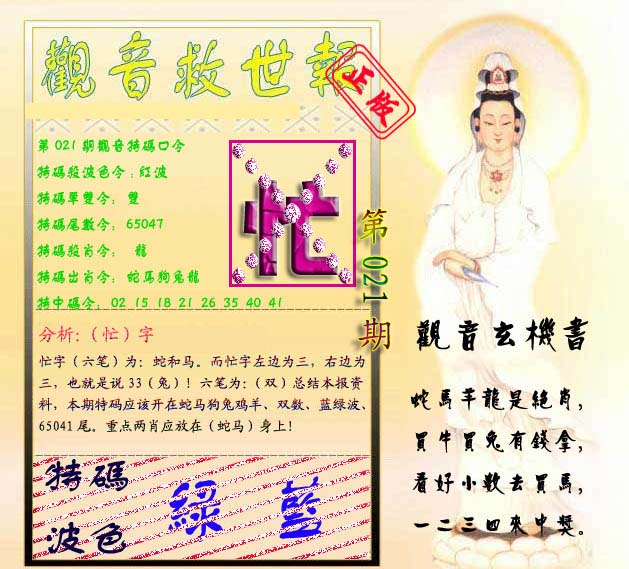 觀音救世報
正版
第021期觀音特碼口令
特碼殺波色令:紅波
特碼單雙令: 雙
特碼尾數令: 65047
特碼殺肖令: 龍
特碼出肖令: 蛇馬狗兔龍
特中碼令: 02 15 18 21 26 35 40 41
忙
第021期
分析:（忙）字
忙字（六笔）为：蛇和马。而忙字左边为三，右边为
三，也就是说33（兔）！六笔为：（双）总结本报资
料，本期特码应该开在蛇马狗兔鸡羊、双数、蓝绿波、
65041尾。重点两肖应放在（蛇马）身上！
特碼
波色
綠 藍
觀音玄機書
蛇馬羊龍是絕肖，
買牛買兔有錢拿，
看好小數去買馬，
一二三四來中獎。